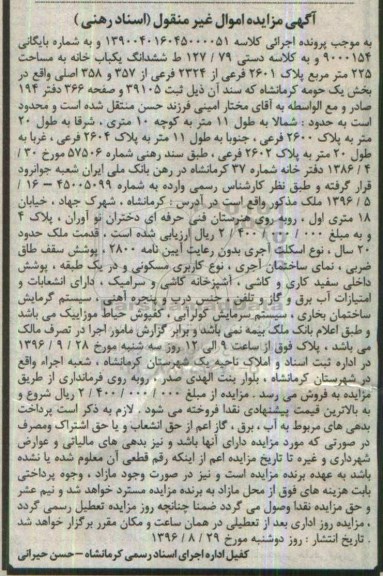 آگهی مزایده اموال غیر منقول (اسناد رهنی )
به موجب پرونده اجرائی کلاسه ۱۳۹۰۰۴۰۱۶۰۴۵۰۰۰۰۵۱ و به شماره بایگانی
۹۰۰۰۱۵۴ و به کلاسه دستی ۷۹ / ۱۲۷ ط ششدانگ یکباب خانه به مساحت
۲۲۵ متر مربع پلاک ۲۶۰۱ فرعی از ۲۳۲۴ فرعی از ۳۵۷ و ۳۵۸ اصلی واقع در
بخش یک حومه کرمانشاه که سند آن ذیل ثبت ۳۹۱۰۵ و صفحه ۳۶۶ دفتر ۱۹۴
صادر و مع الواسطه به آقای مختار امینی فرزند حسن منتقل شده است و محدود
است به حدود : شمالا به طول ۱۱ متر به کوچه ۱۰ متری ، شرقا به طول ۲۰
متر به پلاک ۲۶۰۰ فرعی ، جنوبا به طول ۱۱ متر به پلاک ۲۶۰۴ فرعی ، غربا به
طول ۲۰ متر به پلاک ۲۶۰۲ فرعی ، طبق سند رهنی شماره ۵۷۵۰۶ مورخ ۳۰ /
۴ / ۱۳۸۶ دفتر خانه شماره ۳۷ کرمانشاه در رهن بانک ملی ایران شعبه جوانرود
قرار گرفته و طبق نظر کارشناس رسمی وارده به شماره ۴۵۰۰۵۰۹۹ – ۱۶ /
۵ / ۱۳۹۶ ملک مذکور واقع است در آدرس : کرمانشاه ، شهرک جهاد ، خیابان
۱۸ متری اول ، روبه روی هنرستان فنی حرفه ای دختران نو آوران ، پلاک ۴
و به مبلغ ۰۰۰ / ۰۰۰ / ۴۰۰ / ۲ ریال ارزیابی شده است . قدمت ملک حدود
۲۰ سال ، نوع اسکلت آجری بدون رعایت آیین نامه ۲۸۰۰ ، پوشش سقف طاق
ضربی ، نمای ساختمان آجری ، نوع کاربری مسکونی و در یک طبقه ، پوشش
داخلی سفید کاری و کاشی ، آشپزخانه کاشی و سرامیک ، دارای انشعابات و
امتیازات آب برق و گاز و تلفن ، جنس درب و پنجره آهنی ، سیستم گرمایش
ساختمان بخاری ، سیستم سرمایش کولرآبی ، کفپوش حیاط موزاییک می باشد
و طبق اعلام بانک ملک بیمه نمی باشد و برابر گزارش مامور اجرا در تصرف مالک
می باشد ، پلاک فوق از ساعت ۹ الی ۱۲ روز سه شنبه مورخ ۲۸ / ۹ / ۱۳۹۶
در اداره ثبت اسناد و املاک ناحیه یک شهرستان کرمانشاه ، شعبه اجراء واقع
در شهرستان کرمانشاه ، بلوار بنت الهدی صدر ، روبه روی فرمانداری از طریق
مزایده به فروش می رسد . مزایده از مبلغ ۰۰۰ / ۰۰۰ / ۴۰۰ / ۲ ریال شروع و
به بالاترین قیمت پیشنهادی نقدا فروخته می شود . لازم به ذکر است پرداخت
بدهی های مربوط به آب ، برق ، گاز اعم از حق انشعاب و یا حق اشتراک ومصرف
در صورتی که مورد مزایده دارای آنها باشد و نیز بدهی های مالیاتی و عوارض
شهرداری و غیره تا تاریخ مزایده اعم از اینکه رقم قطعی آن معلوم شده یا نشده
باشد به عهده برنده مزایده است و نیز در صورت وجود مازاد ، وجوه پرداختی
بابت هزینه های فوق از محل مازاد به برنده مزایده مسترد خواهد شد و نیم عشر
و حق مزایده نقدا وصول می گردد ضمنا چنانچه روز مزایده تعطیل رسمی گردد
، مزایده روز اداری بعد از تعطیلی در همان ساعت و مکان مقرر برگزار خواهد شد
. تاریخ انتشار : روز دوشنبه مورخ ۲۹ / ۸ / ۱۳۹۶
کفیل اداره اجرای اسناد رسمی کرمانشاه – حسن حیرانی